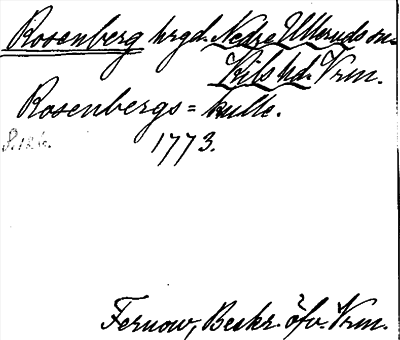 Rosenberg hrgd. Nedre Ulleruds sn.
Kils hd. Vrm.
Rosenbergs = kulle.
S. 126.
1773.
Fernow, Beskr. öfv. Vrm.